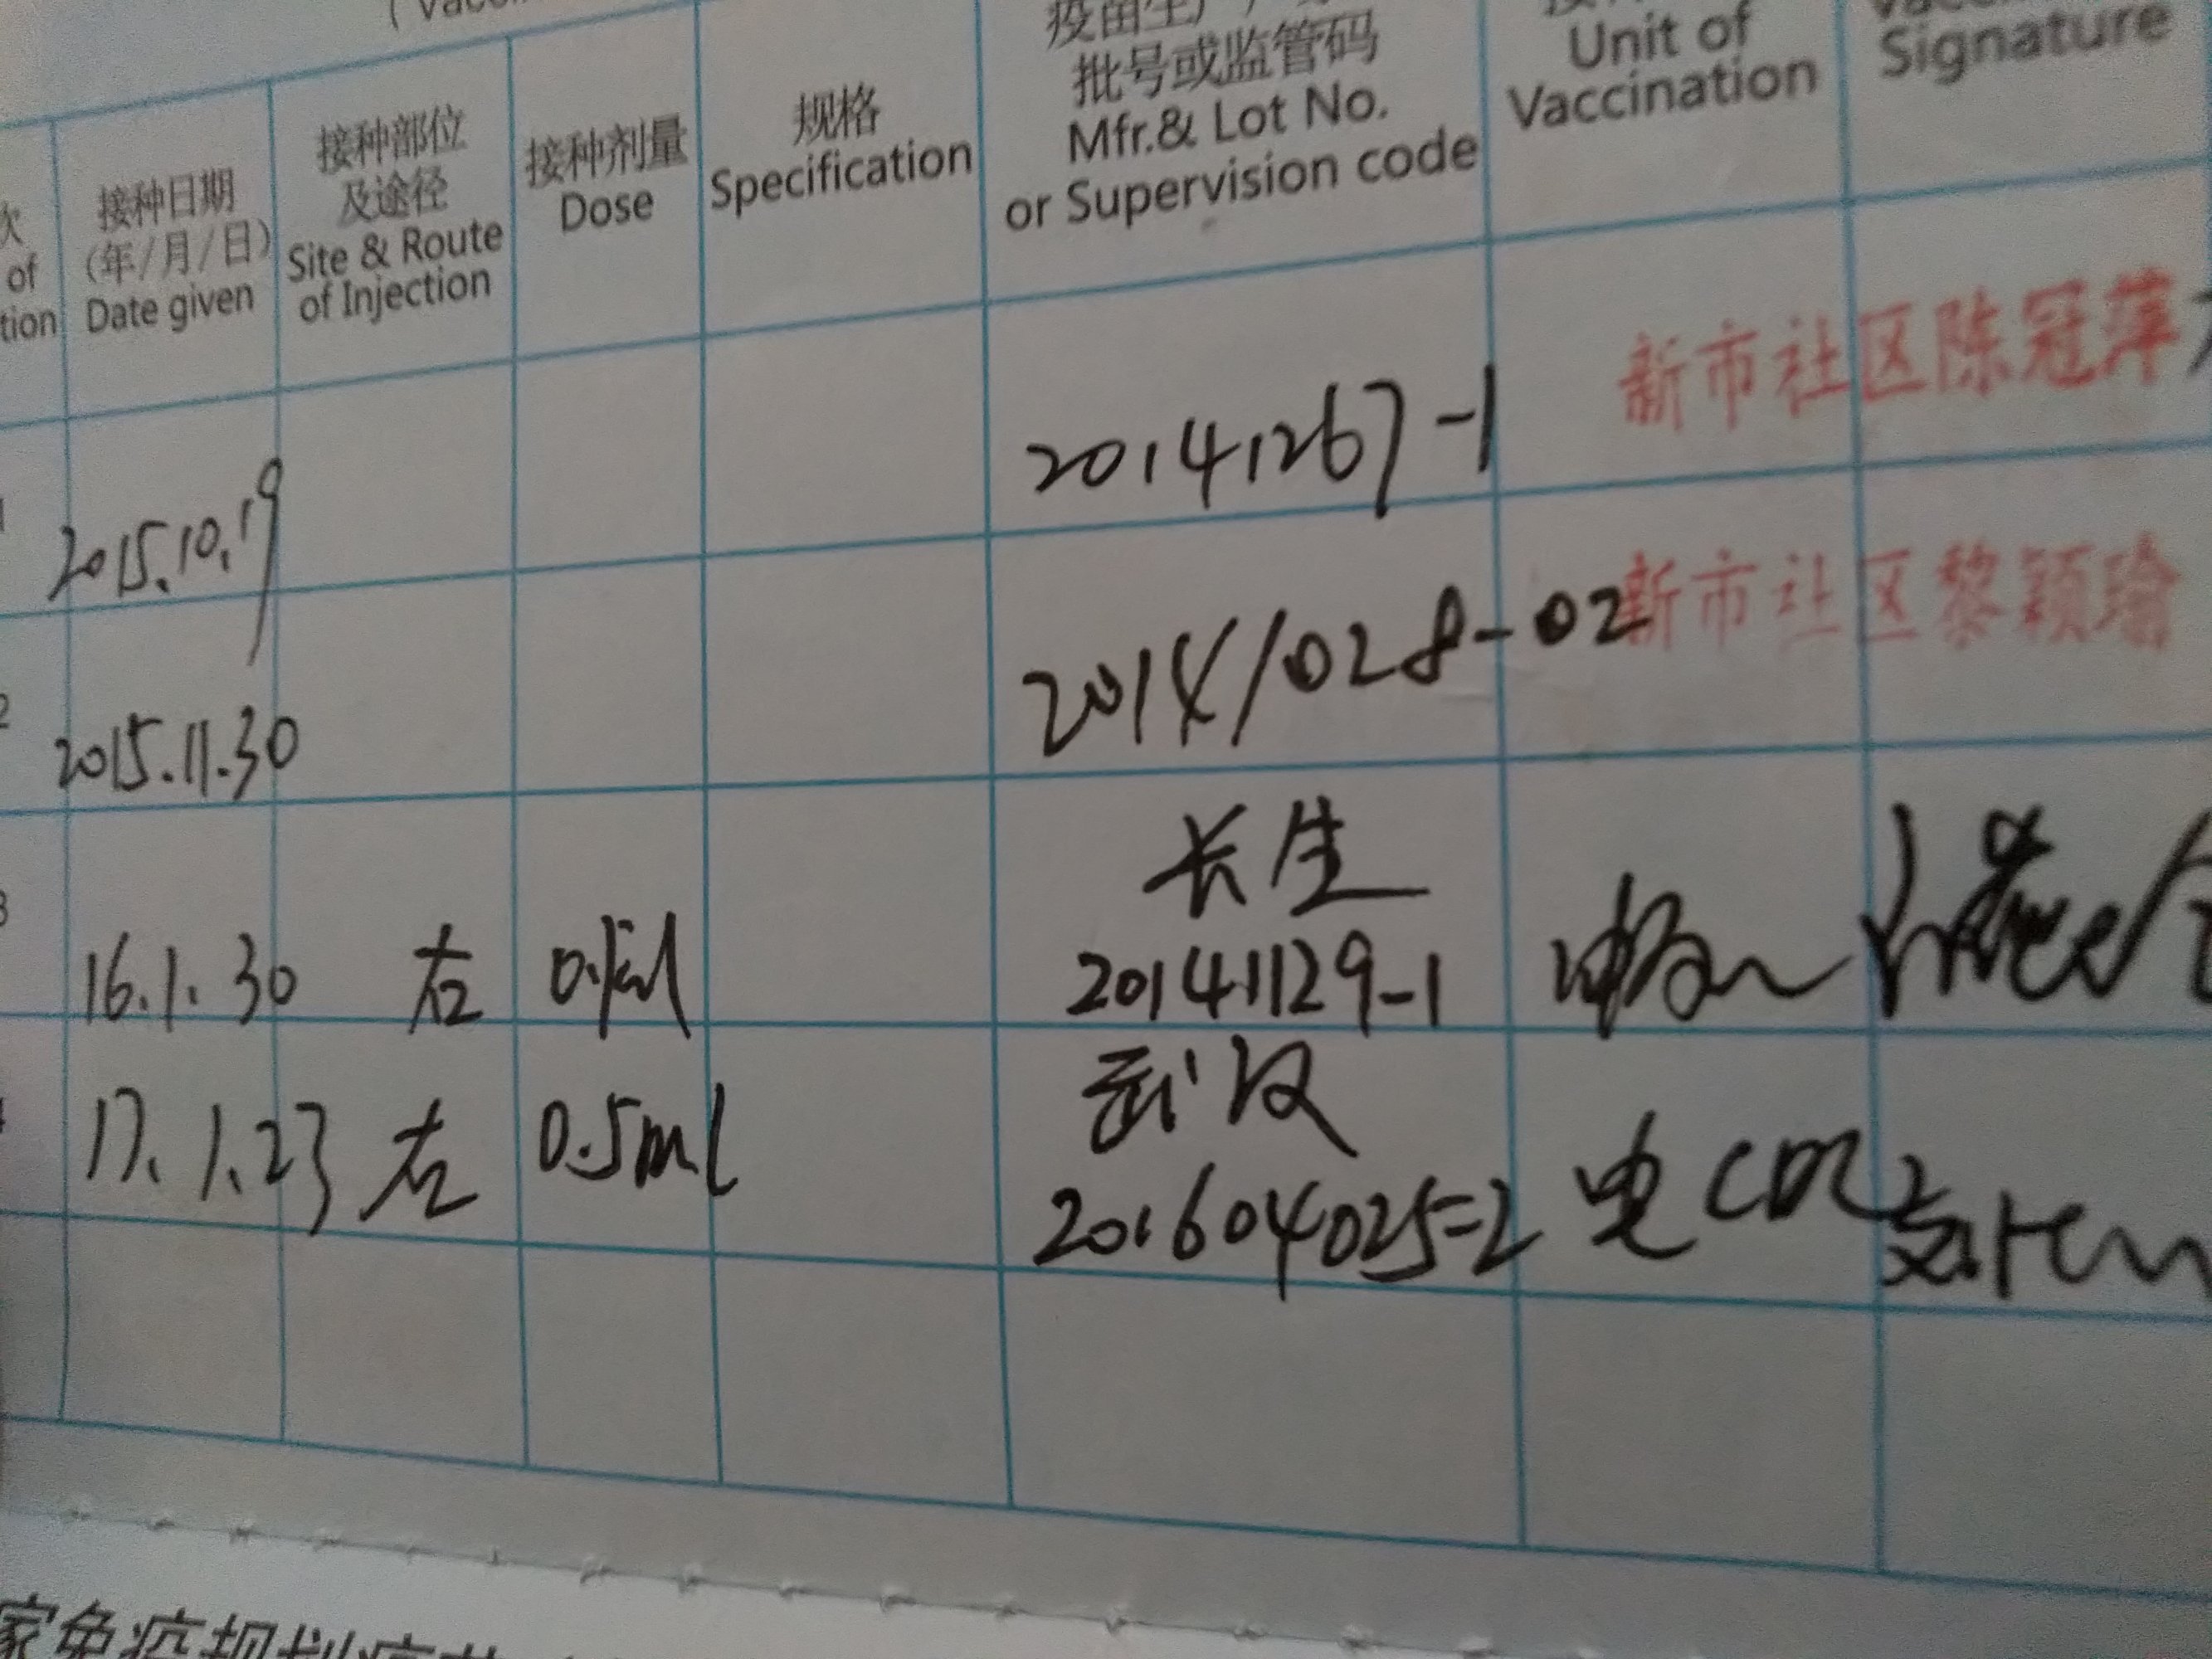 次
of
tion
接种日期
(年/月/日)
Date given
接种部位
及途径
Site & Route
of Injection
接种剂量
Dose
规格
Specification
批号或监管码
Mfr.& Lot No.
or Supervision code
Unit of
Vaccination
Signature
1 2015.10.19 20141267-1 新市社区陈冠萍
2 2015.11.30 2014/028-02 新市社区黎颖瑜
长生
3 16.1.30 左 20141129-1
武汉
17.1.23 左 0.5ml 201604025=2
家免疫规划疫苗